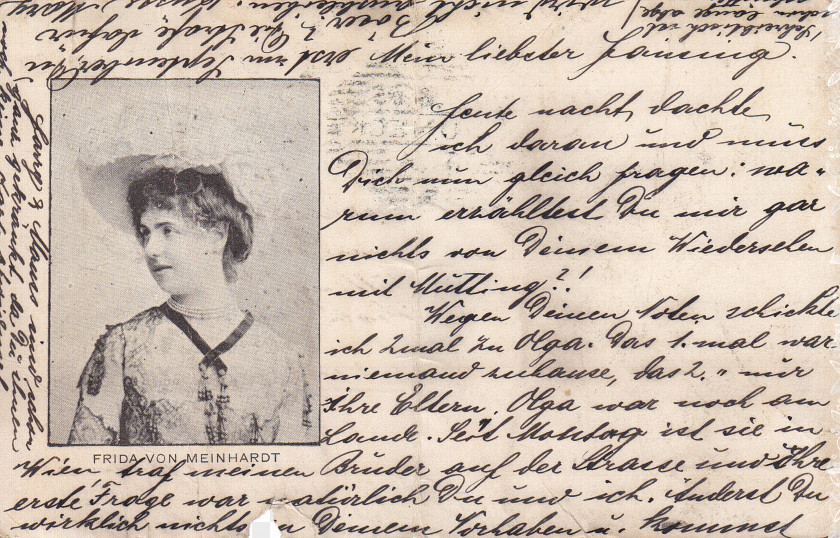 Mein liebster Jansing.
Heute nacht dachte
ich daran und muss
Dich nun gleich fragen: wa-
rum erzähltest Du mir gar
nichts von Deinem Wiedersehen
mit Mutting?!
Wegen Deinen Noten schickte
ich 2mal zu Olga. Das 1. mal war
niemand zuhause, das 2. " nur
Ihre Eltern. Olga war noch am
Lande. Seit Montag ist sie in
Wien, traf meinen Bruder auf der Strasse und Ihre
erste Frage war natürlich Du und ich. Änderst Du
wirklich nichts in Deinem Vorhaben u. kommst
erst im September
Die Straße
nicht
lange
und
ganz gekränkt da Du ihnen
FRIDA VON MEINHARDT